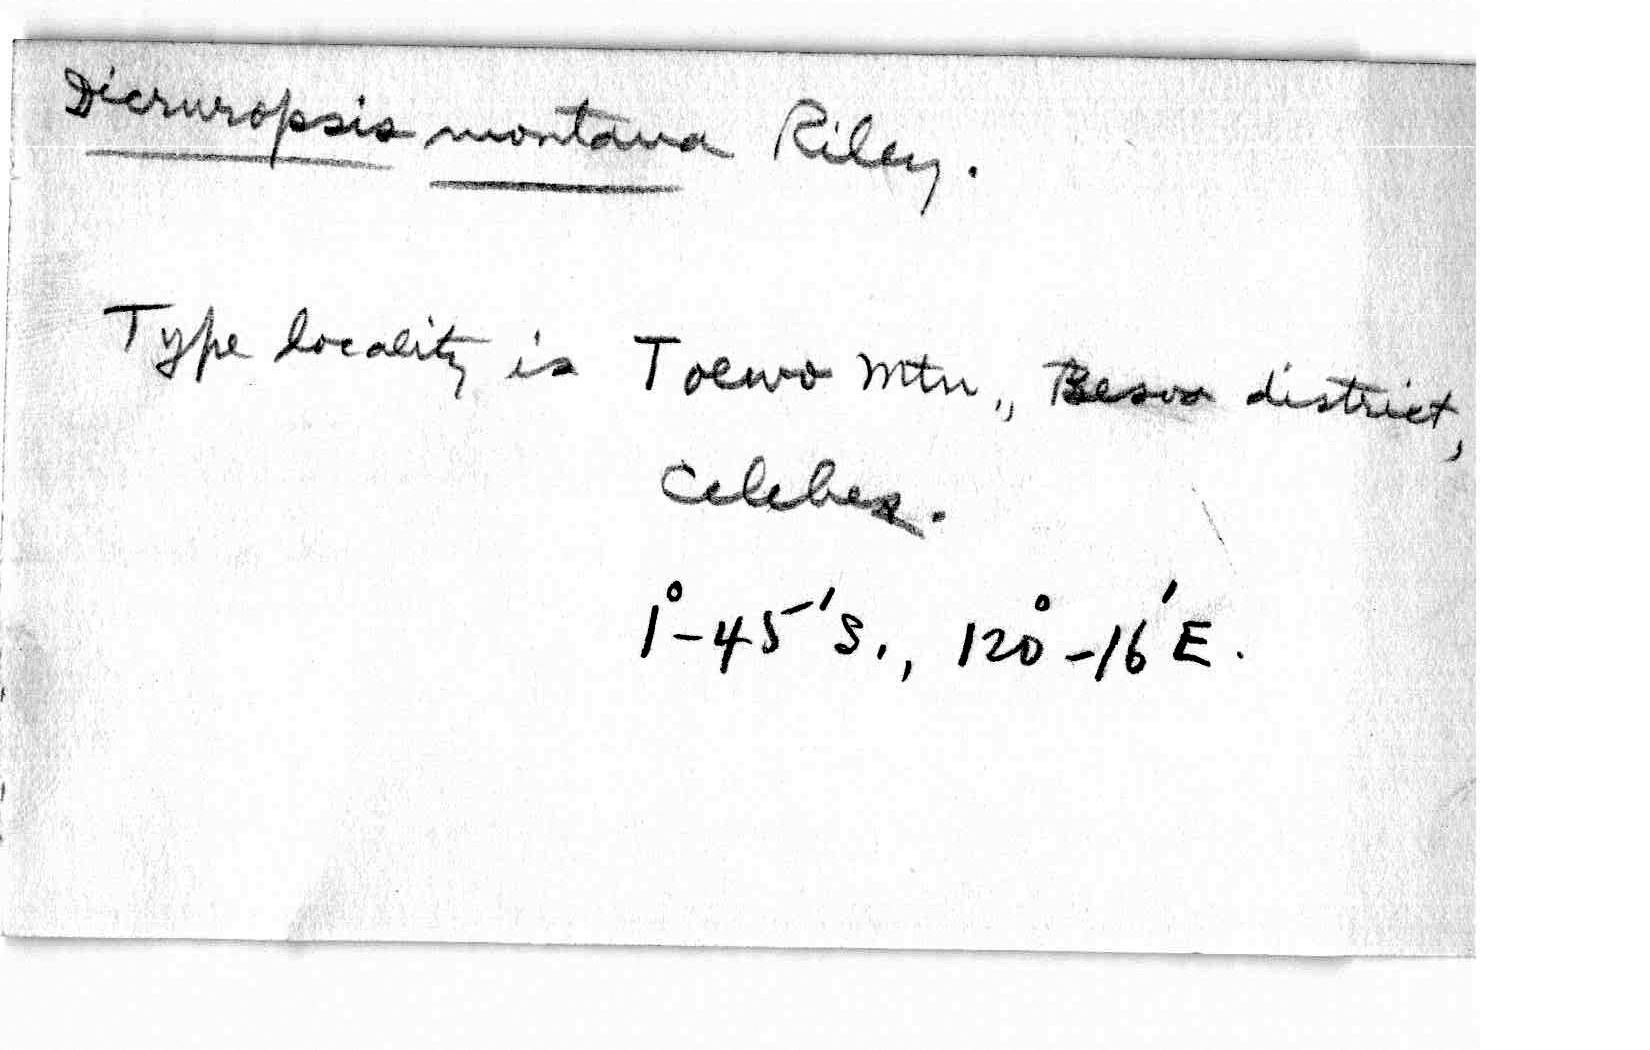 Dicruropsis montana Riley.
Type locality is Toewo Mtn., Besoa district,
Celebes.
1°-45'S., 120°-16'E.